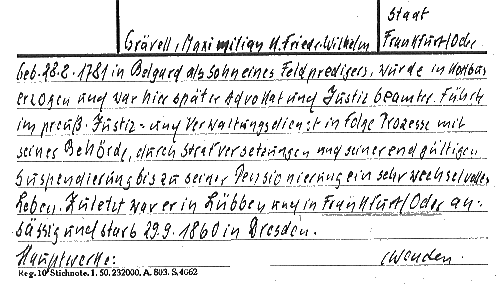 Stadt
Grävell, Maximilian K. Friedr. Wilhelm Frankfurt/Oder
geb. 28.8.1781 in Belgard als Sohn eines Feldpredigers, wurde in Kottbus
erzogen und war hier später Advokat und Justizbeamter. Führte
im preuß. Justiz- und Verwaltungsdienst infolge Prozesse mit
seiner Behörde, durch Strafversetzungen und seiner endgültigen
Suspendierung bis zu seiner Pensionierung ein sehr wechselvolles
Leben. Zuletzt war er in Lübben und in Frankfurt/Oder an-
sässig und starb 29.9.1860 in Dresden.
Hauptwerke: (wenden.
Reg. 10 Stichnote. 1. 50. 232000. A. 803. S. 4062